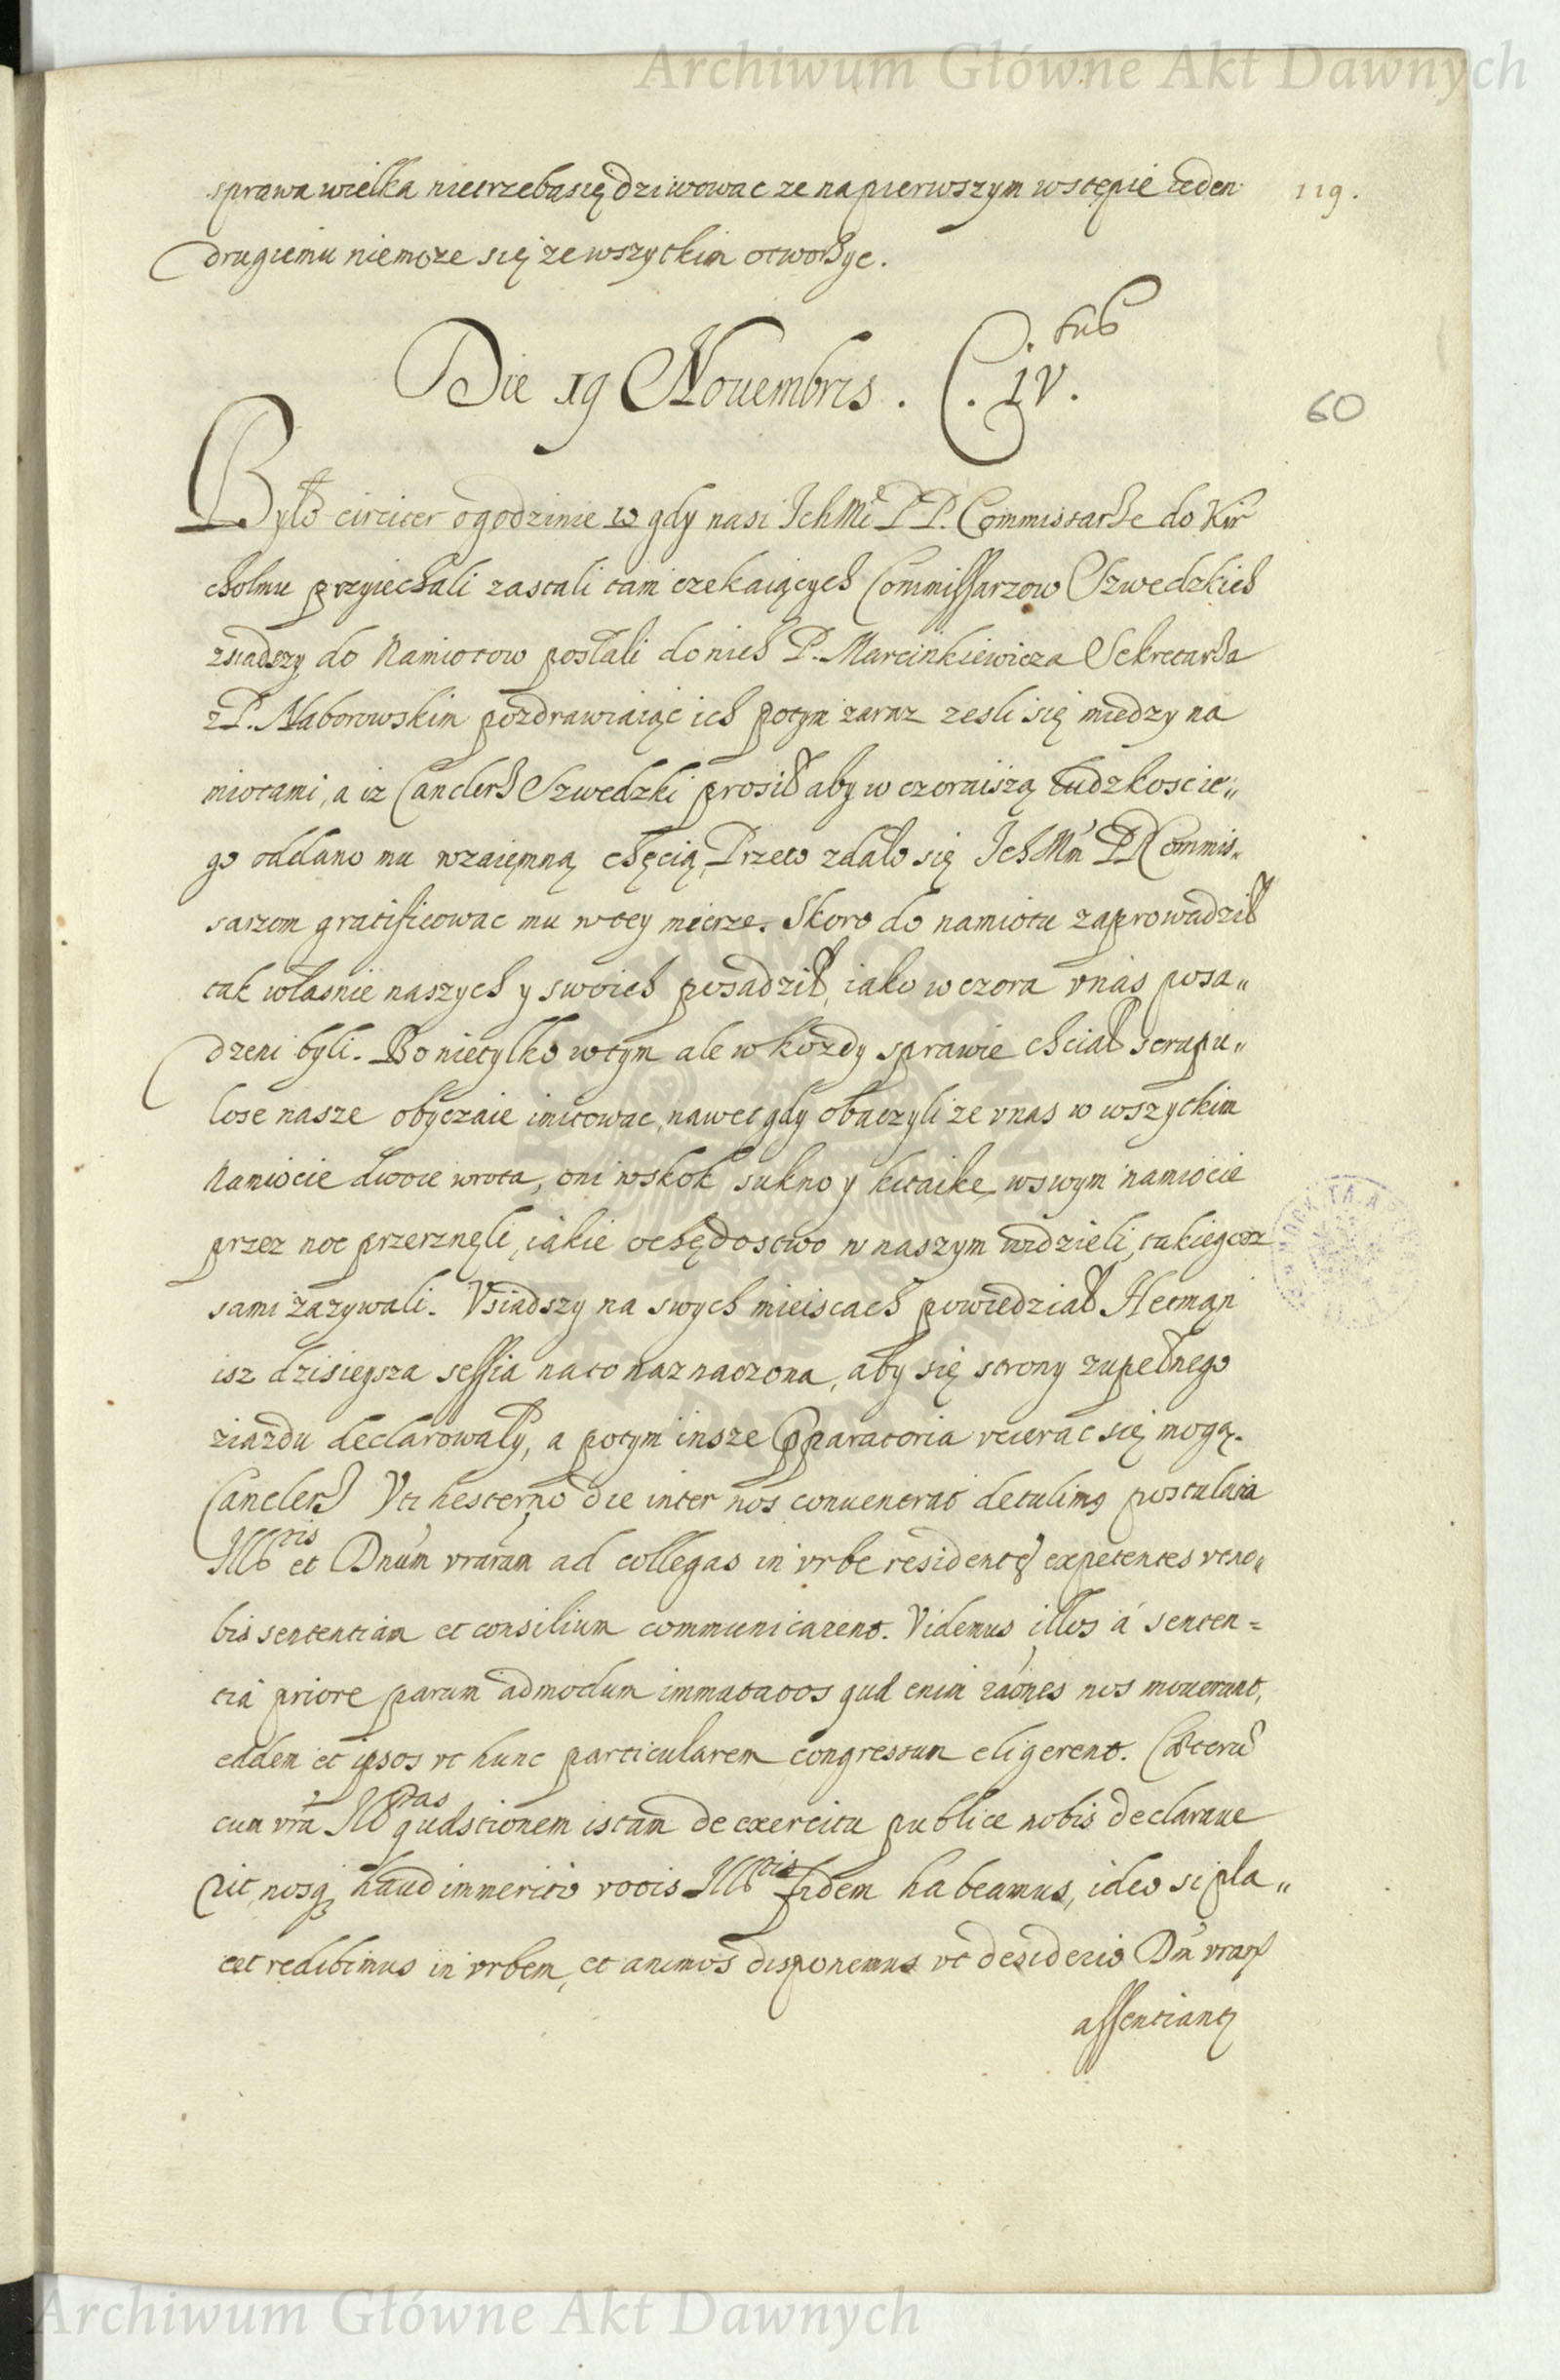 Archiwum Główne Akt Dawnych
sprawa wielka nietrzebasię dziwowac ze napierwszym wstępie ieden
119.
drugiemu niemoze się ze wszytkim otworzyc.
Die 19 Nouembris. C. IV. tus
60
Było circiter ogodzinie 10 gdy nasi Ich Mć PP. Commissarze do Kir
cholmu przyiechali zastali tam czekaiących Commissarzow Szwedzkich
zsiadszy do Namiotow posłali do nich P. Marcinkiewicza Sekretarza
z P. Naborowskim pozdrawiaiąc ich potym zaraz zesli się miedzy na
miotami, a iz Canclerz Szwedzki prosił aby wczoraiszą ludzkosc ie„
go oddano mu wzaięmną chęcią, Przeto zdało się Ich Mm PP Commis„
sarzom gratificowac mu w tey mierze. Skoro do namiotu zaprowadził
tak własnie naszych y swoich posadził, iako wczora vnas posa„
dzeni byli. Bo nietylko wtym ale w kozdy sprawie chciał scrupu„
lose nasze obyczaie imitowac, nawet gdy obaczyli ze vnas w wszytkim
Namiocie dwoie wrota, oni wskok sukno y kitaikę wswym namiocie
przez noc przerznęli, iakie ochędostwo w naszym widzieli, takiegosz
sami zazywali. Vsiadszy na swych mieiscach powiedział Hetman
isz dzisieysza sessia nato naznaczona, aby się strony zupełnego
ziazdu declarowały, a potym insze pparatoria vcierac się mogą.
Canclerz Vti hesterno die inter nos conuenerat detulimq postulata
Illris et Dnum vrarum ad collegas in vrbe residentes expetentes vt no„
bis sententiam et consilium communicarent. Videmus illos á senten=
tiá priore parum admodum immutatos quæ enim raones nos mouerant,
eædem et ipsos vt hunc particularem congressum eligerent. Cæterum
cum vra Illtas quæstionem istam de exercitu publice nobis declaraue
rit, nosq haud immerito vocis Illris fidem habeamus, ideo si pla„
cet redibimus in vrbem, et animos disponemus vt desiderio Dm vrarum
assentiantur
Archiwum Główne Akt Dawnych